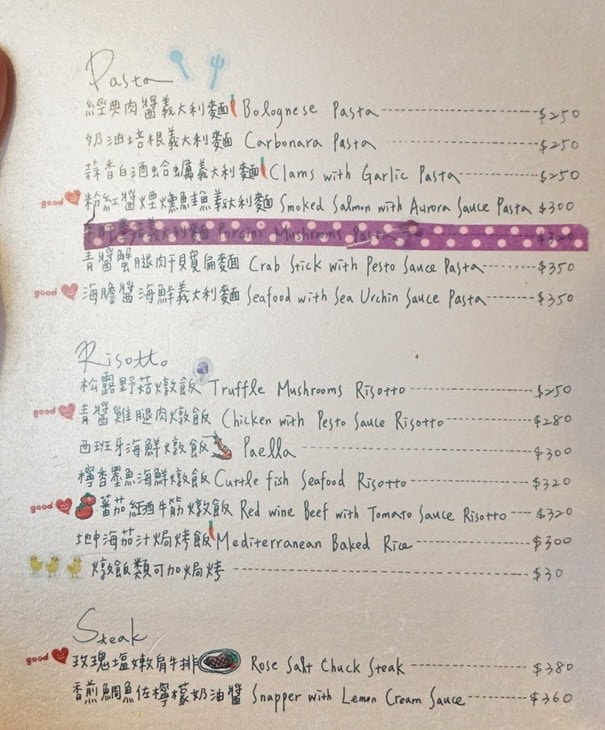 Pasta
經典肉醬義大利麵 Bolognese Pasta $250
奶油培根義大利麵 Carbonara Pasta $250
蒜香白酒蛤蠣義大利麵 Clams with Garlic Pasta $250
good 粉紅醬煙燻鮭魚義大利麵 Smoked Salmon with Aurora Sauce Pasta $300
義大利麵 Porcini Mushrooms Pasta
青醬蟹腿肉干貝寬扁麵 Crab Stick with Pesto Sauce Pasta $350
good 海膽醬海鮮義大利麵 Seafood with Sea Urchin Sauce Pasta $350
Risotto
松露野菇燉飯 Truffle Mushrooms Risotto $250
good 青醬雞腿肉燉飯 Chicken with Pesto Sauce Risotto $280
西班牙海鮮燉飯 Paella $300
檸香墨魚海鮮燉飯 Cuttle fish Seafood Risotto $320
good 蕃茄紅酒牛筋燉飯 Red wine Beef with Tomato Sauce Risotto $320
地中海茄汁焗烤飯 Mediterranean Baked Rice $300
燉飯類可加焗烤 $30
Steak
good 玫瑰塩嫩肩牛排 Rose Salt Chuck Steak $380
香煎鯛魚佐檸檬奶油醬 Snapper with Lemon Cream Sauce $360